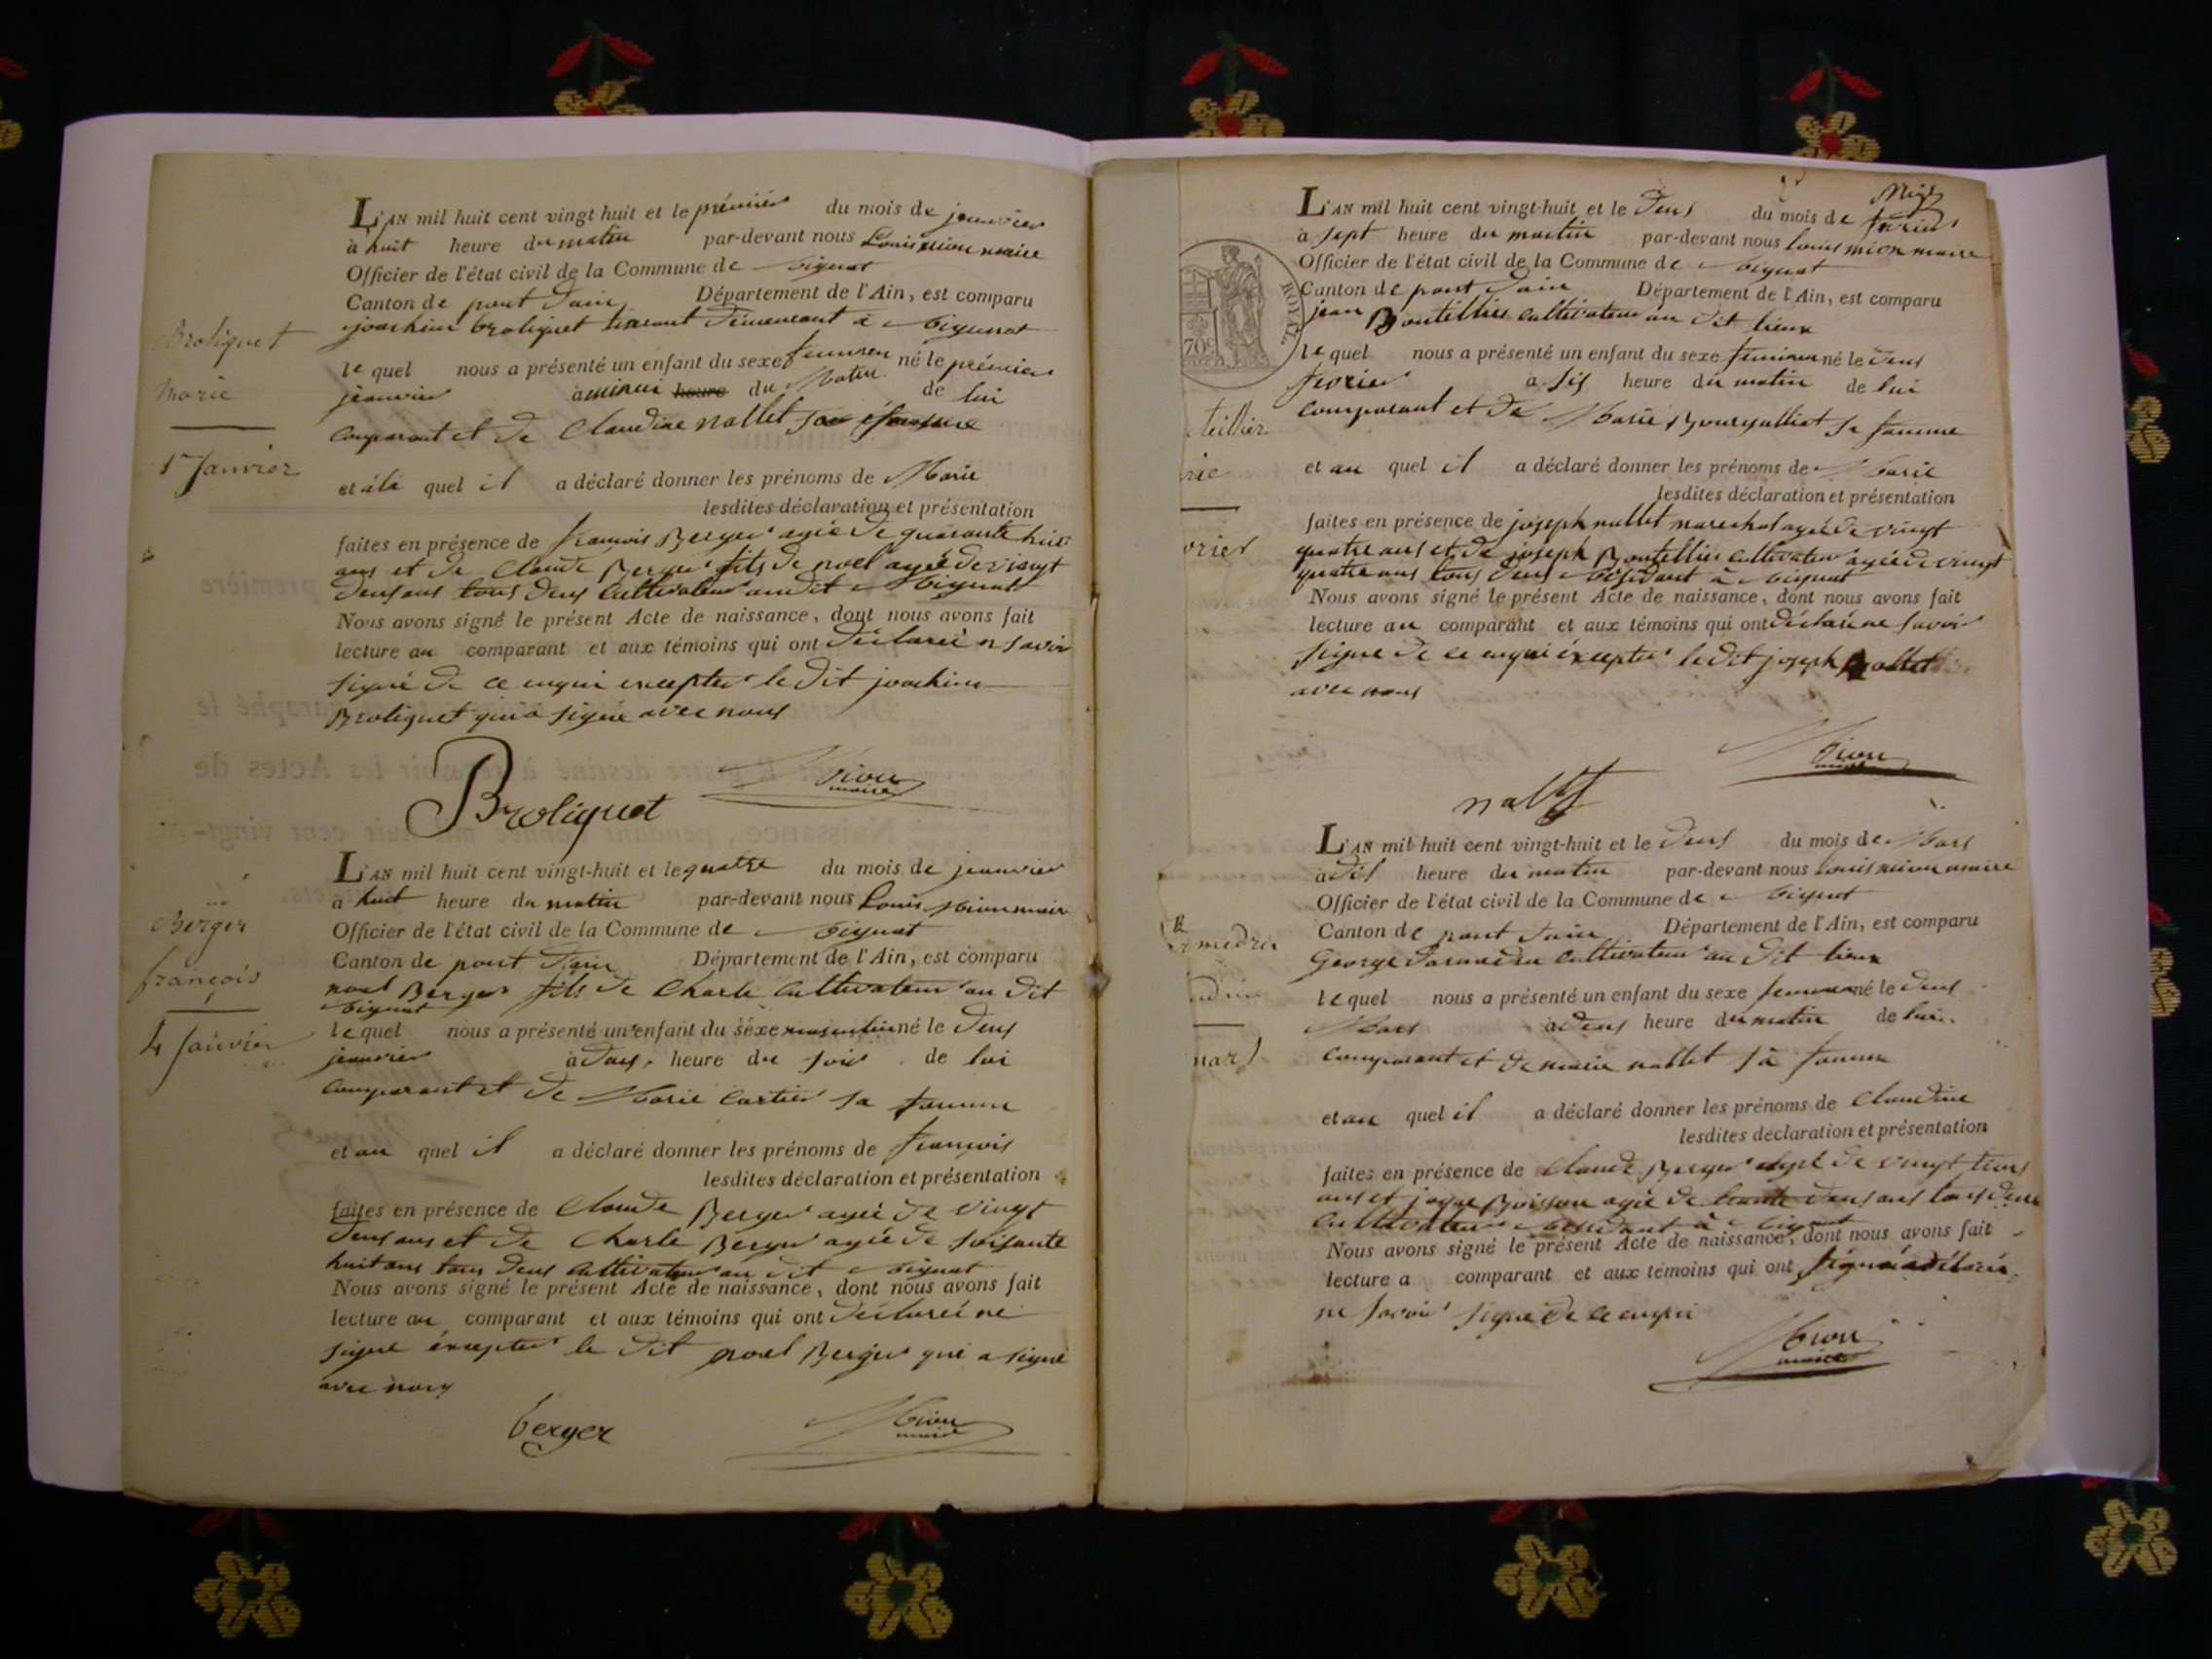 Broliquet
Marie
1er Janvier
L'AN mil huit cent vingt-huit et le prémier du mois de jeanvier
à huit heure du matin par-devant nous Louis mion maire
Officier de l'état civil de la Commune de
Canton de pont Dain Département de l'Ain, est comparu
joachim broliquet demeurant à
le quel nous a présenté un enfant du sexe né le prémier
jeanvier à minui heure du Matin de lui
comparant et de Claudine nallet
et à la quel il a déclaré donner les prénoms de Marie
lesdites déclaration et présentation
faites en présence de francois Berger agée de quarante huit
ans et de Claude Berger fils de noel agée de vingt
deus ans tous deus Cultivateur au dit
Nous avons signé le présent Acte de naissance, dont nous avons fait
lecture au comparant et aux témoins qui ont déclareé n savoir
signé de ce enqui excepter le dit joachim
Broliquet qui a signé avec nous
Broliquet
Mion
maire
Berger
françois
4 Janvier
L'AN mil huit cent vingt-huit et le quatre du mois de jeanvier
à huit heure du matin par-devant nous Louis mion maire
Officier de l'état civil de la Commune de
Canton de pont Dain Département de l'Ain, est comparu
noel Berger fils de Charle Cultivateur au dit
le quel nous a présenté un enfant du sexe masculin né le deus
jeanvier à heure du soir de lui
comparant et de Marie Cartier sa famme
et au quel il a déclaré donner les prénoms de francois
lesdites déclaration et présentation
faites en présence de Claude Berger agée de vingt
deus ans et de Charle Berger agée de soisante
huit ans tous deus Cultivateur au dit
Nous avons signé le présent Acte de naissance, dont nous avons fait
lecture au comparant et aux témoins qui ont déclareé ne
signé éxcepter le dit noel Berger qui a signé
avec nous
berger
Mion
maire
ROYAL
70c
teillier
rie
vrier
L'AN mil huit cent vingt-huit et le deus du mois de fevrier
à sept heure du matin par-devant nous louis mion maire
Officier de l'état civil de la Commune de
Canton de pont Dain Département de l'Ain, est comparu
jean Boutillier cultivateur au dit lieux
le quel nous a présenté un enfant du sexe feminin né le deus
fevrier à sis heure du matin de lui
comparant et de Marie sa famme
et au quel il a déclaré donner les prénoms de Marie
lesdites déclaration et présentation
faites en présence de joseph nallet marechal agée de vingt
quatre ans et de joseph Boutellier cultivateur agée de vingt
quatre ans tous deus résidant à
Nous avons signé le présent Acte de naissance, dont nous avons fait
lecture au comparant et aux témoins qui ont déclaré ne savoir
signe de ce enqui éxcepter le dit joseph nallet
avec nous
nallet
Mion
maire
medre
mars
L'AN mil huit cent vingt-huit et le deus du mois de Mars
à dis heure du matin par-devant nous louis mion maire
Officier de l'état civil de la Commune de
Canton de pont Dain Département de l'Ain, est comparu
George cultivateur au dit lieux
le quel nous a présenté un enfant du sexe né le deus
Mars à deus heure du matin de lui
comparant et de marie nallet sa famme
et au quel il a déclaré donner les prénoms de Claudine
lesdites déclaration et présentation
faites en présence de Claude Berger agée de vingt trois
ans et Buisson agée de trante deus ans tous deus
Cultivateur résidant à
Nous avons signé le présent Acte de naissance, dont nous avons fait
lecture a comparant et aux témoins qui ont
ne savoir signé de ce enqui
Mion
maire